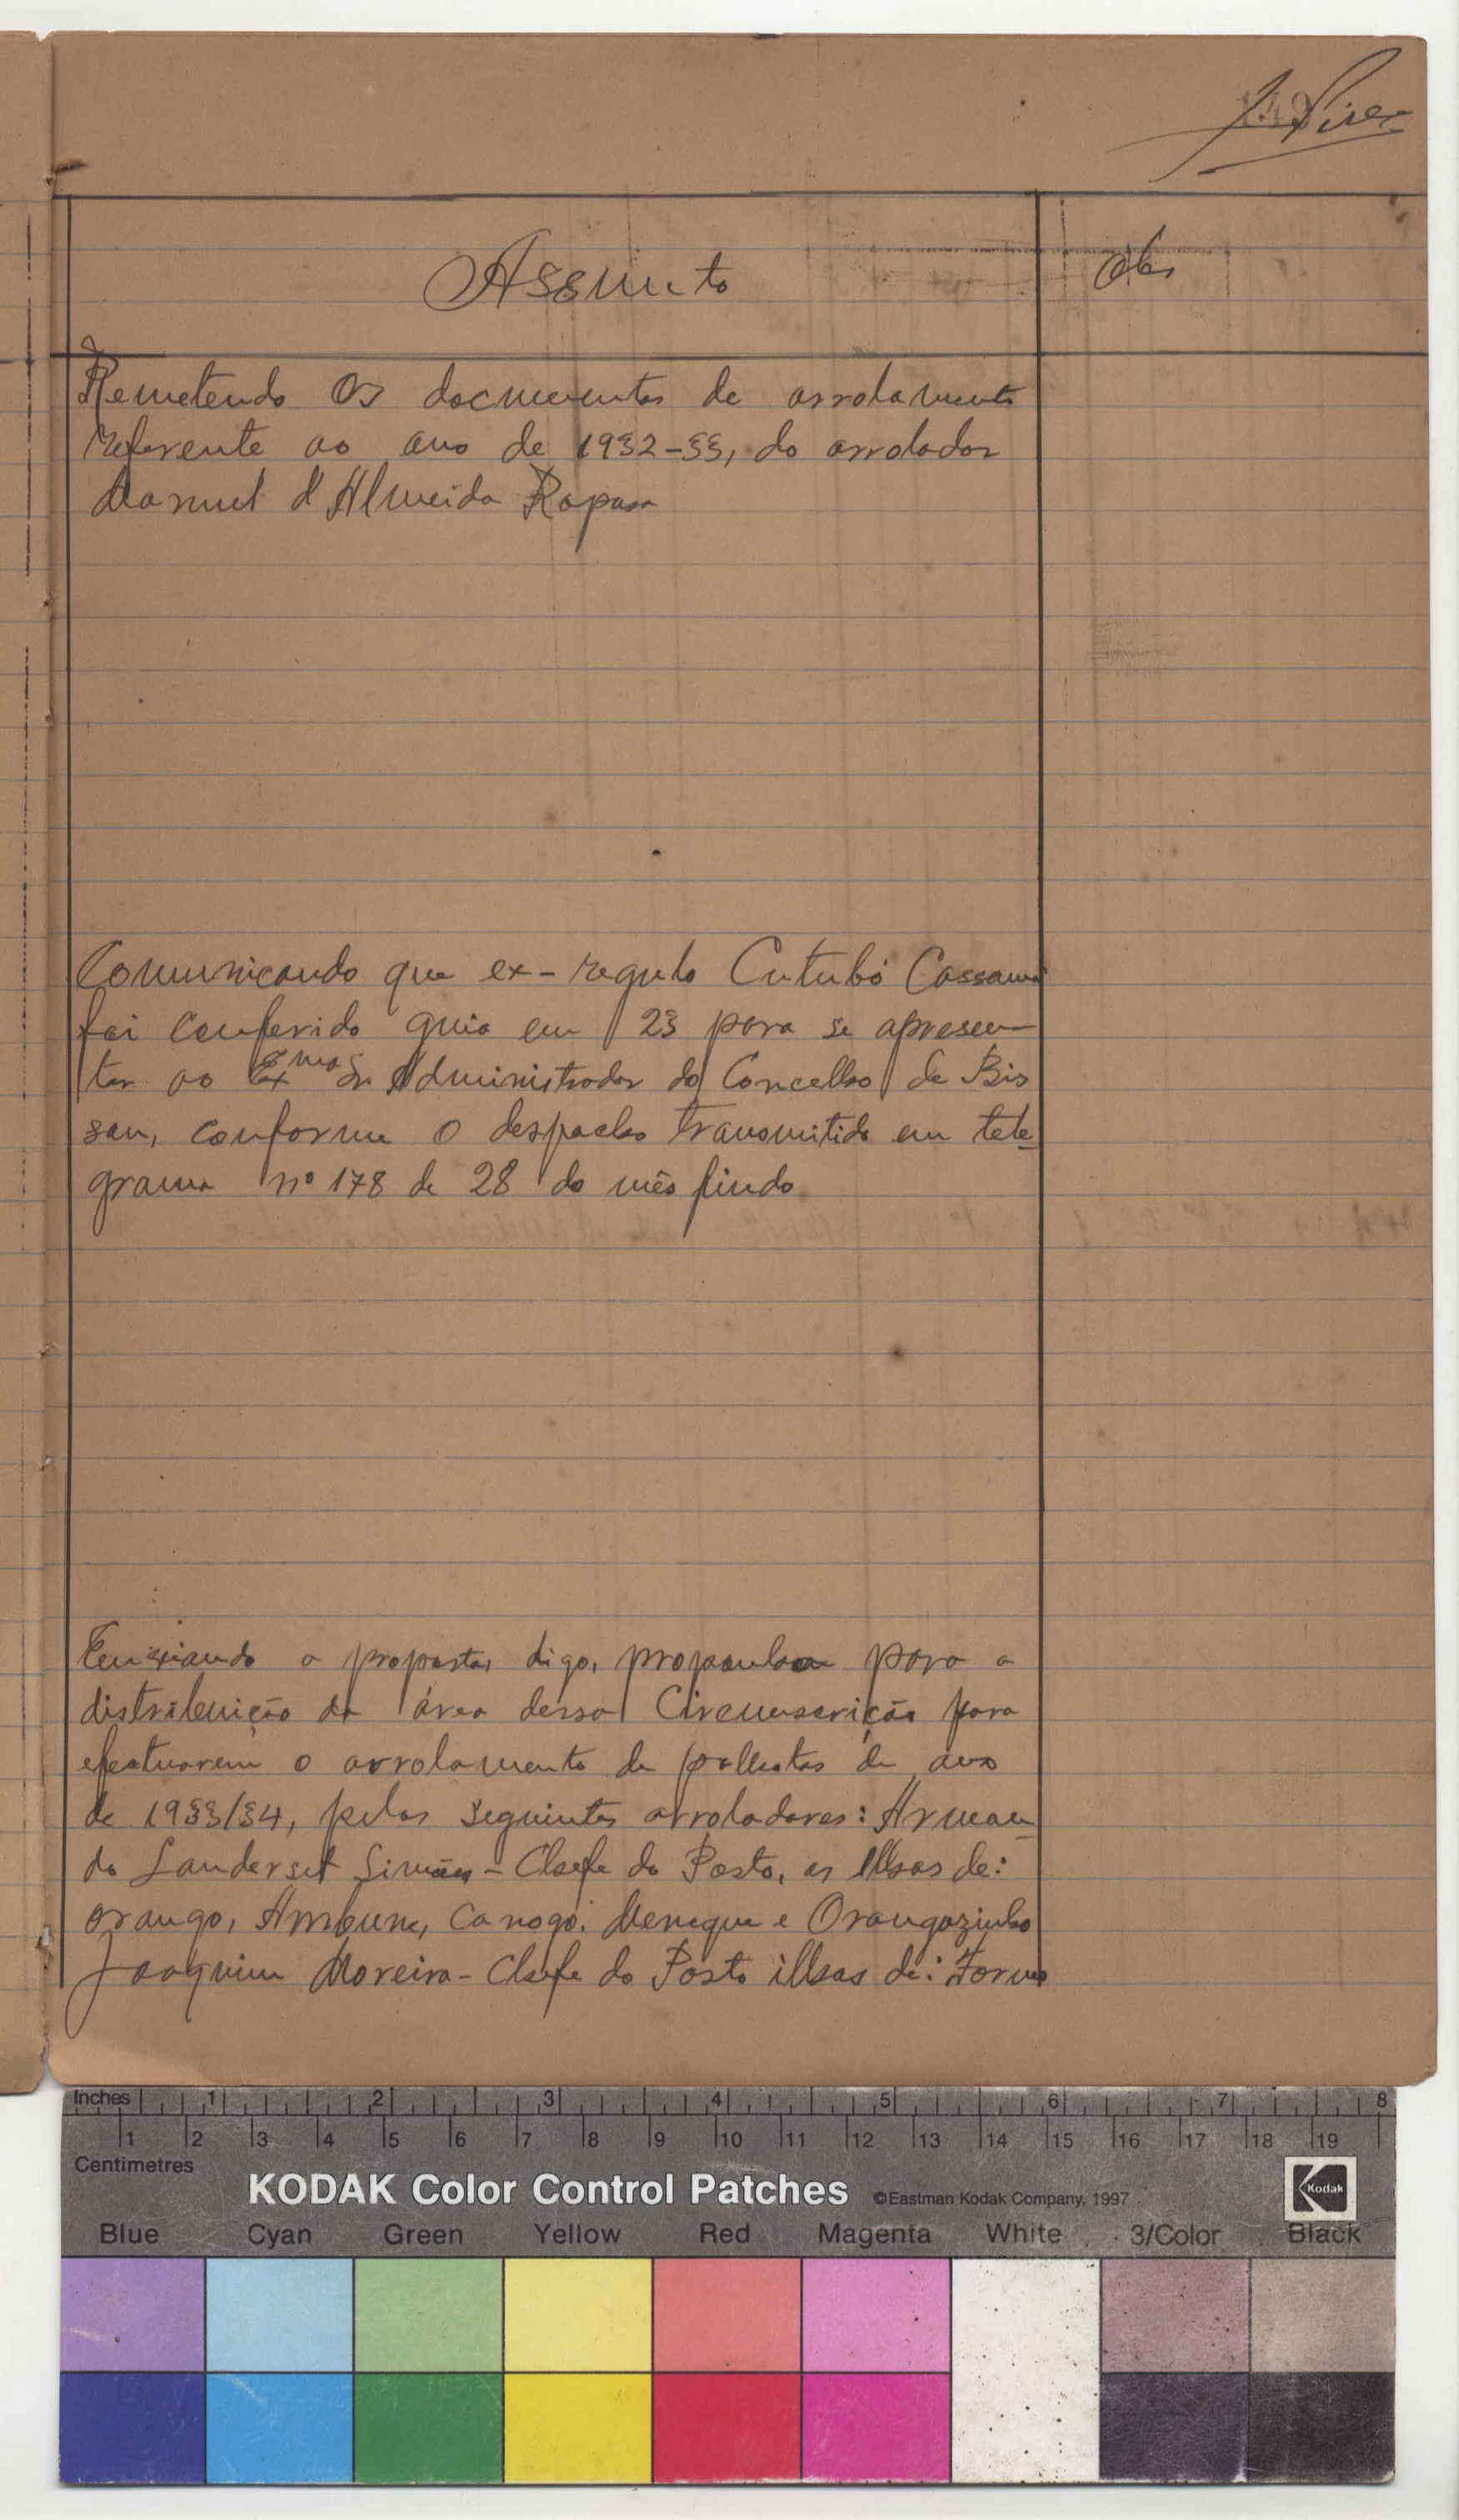 J. Pires
Assunto
Obs
Remetendo os documentos de arrolamento
referente ao ano de 1932-33, do arrolador
Manuel d'Almeida Raposo
Comunicando que ex-regulo Cutubó Cassamá
foi conferido guia em 23 para se apresen-
tar ao Exmo Sr. Administrador do Concelho de Bis
sau, conforme o despacho transmitido em tele
grama nº 178 de 28 do mês findo
Enviando a proposta, digo, propondo para a
distribuição da área dessa Circunscrição para
efectuarem o arrolamento de palhotas do ano
de 1933/34, pelos seguintes arroladores: Arman
do Landerset Simões - Chefe do Posto, as Ilhas de:
Orango, Ambuno, Canogó, Meneque e Orangozinho
Joaquim Moreira - Chefe do Posto ilhas de: Formo
Inches 1 2 3 4 5 6 7 8
1 2 3 4 5 6 7 8 9 10 11 12 13 14 15 16 17 18 19
Centimetres
KODAK Color Control Patches ©Eastman Kodak Company, 1997
Kodak
Blue Cyan Green Yellow Red Magenta White 3/Color Black